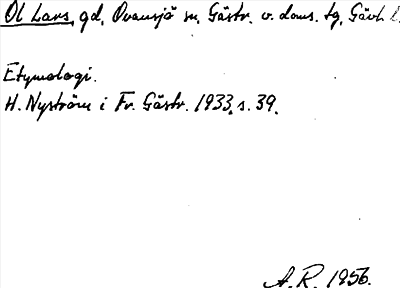 Ol Lars, gd, Ovansjö sn, Gästr. v. doms. tg, Gävl. l.
Etymologi.
H. Nyström i Fr. Gästr. 1933, s. 39.
A. R. 1956.